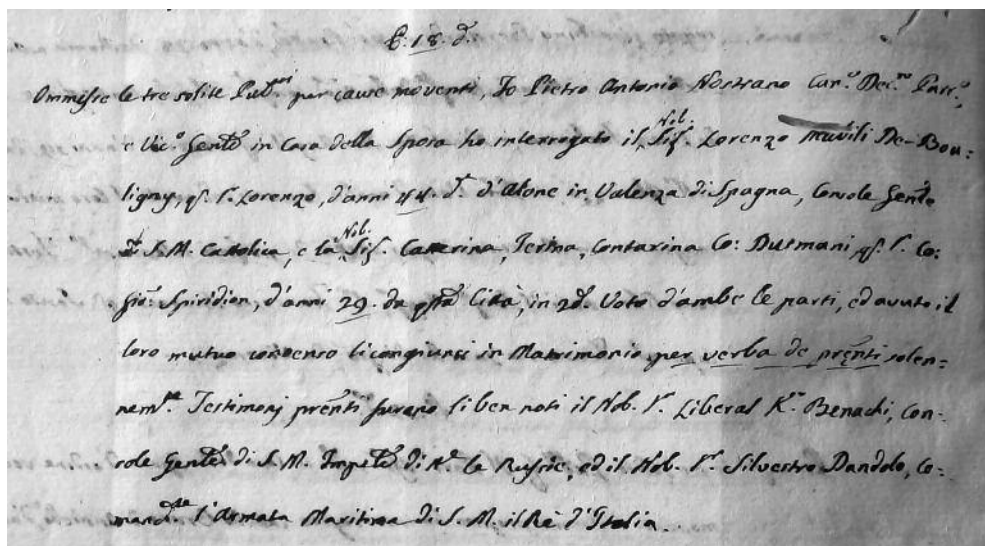 E. 18. d.°
Ommesse le tre solite Pub.ni per cause moventi, Io Pietro Antonio Nostrano Can.° Dec.no Parr.°,
e Vic.° Gen̅le in Casa della Sposa ho interrogato il Nob. Sig. Lorenzo De-Bou:
ligny, q. S. Lorenzo, d'anni 44. in Valenza di Spagna, Console Gen̅le
di S. M. Cattolica, e la Nob. Sig. Catterina, Contarina Co: Dusmani, q. S. Co:
Gio: Spiridion, d'anni 29. da q̅sta Città, in Voto d'ambe le parti, ed avuto il
loro mutuo consenso li congiunsi in Matrimonio per verba de prēnti solen=
nem.te. Testimonj prēnti furano li ben noti il Nob. S. Liberal K.r Benachi, Con-
sole Gen̅le di S. M. Imp̅le di le Russie, ed il Nob. S.r Silvestro Dandolo, Co:
mand.te l'Armata Maritima di S. M. il Rè d'Italia.